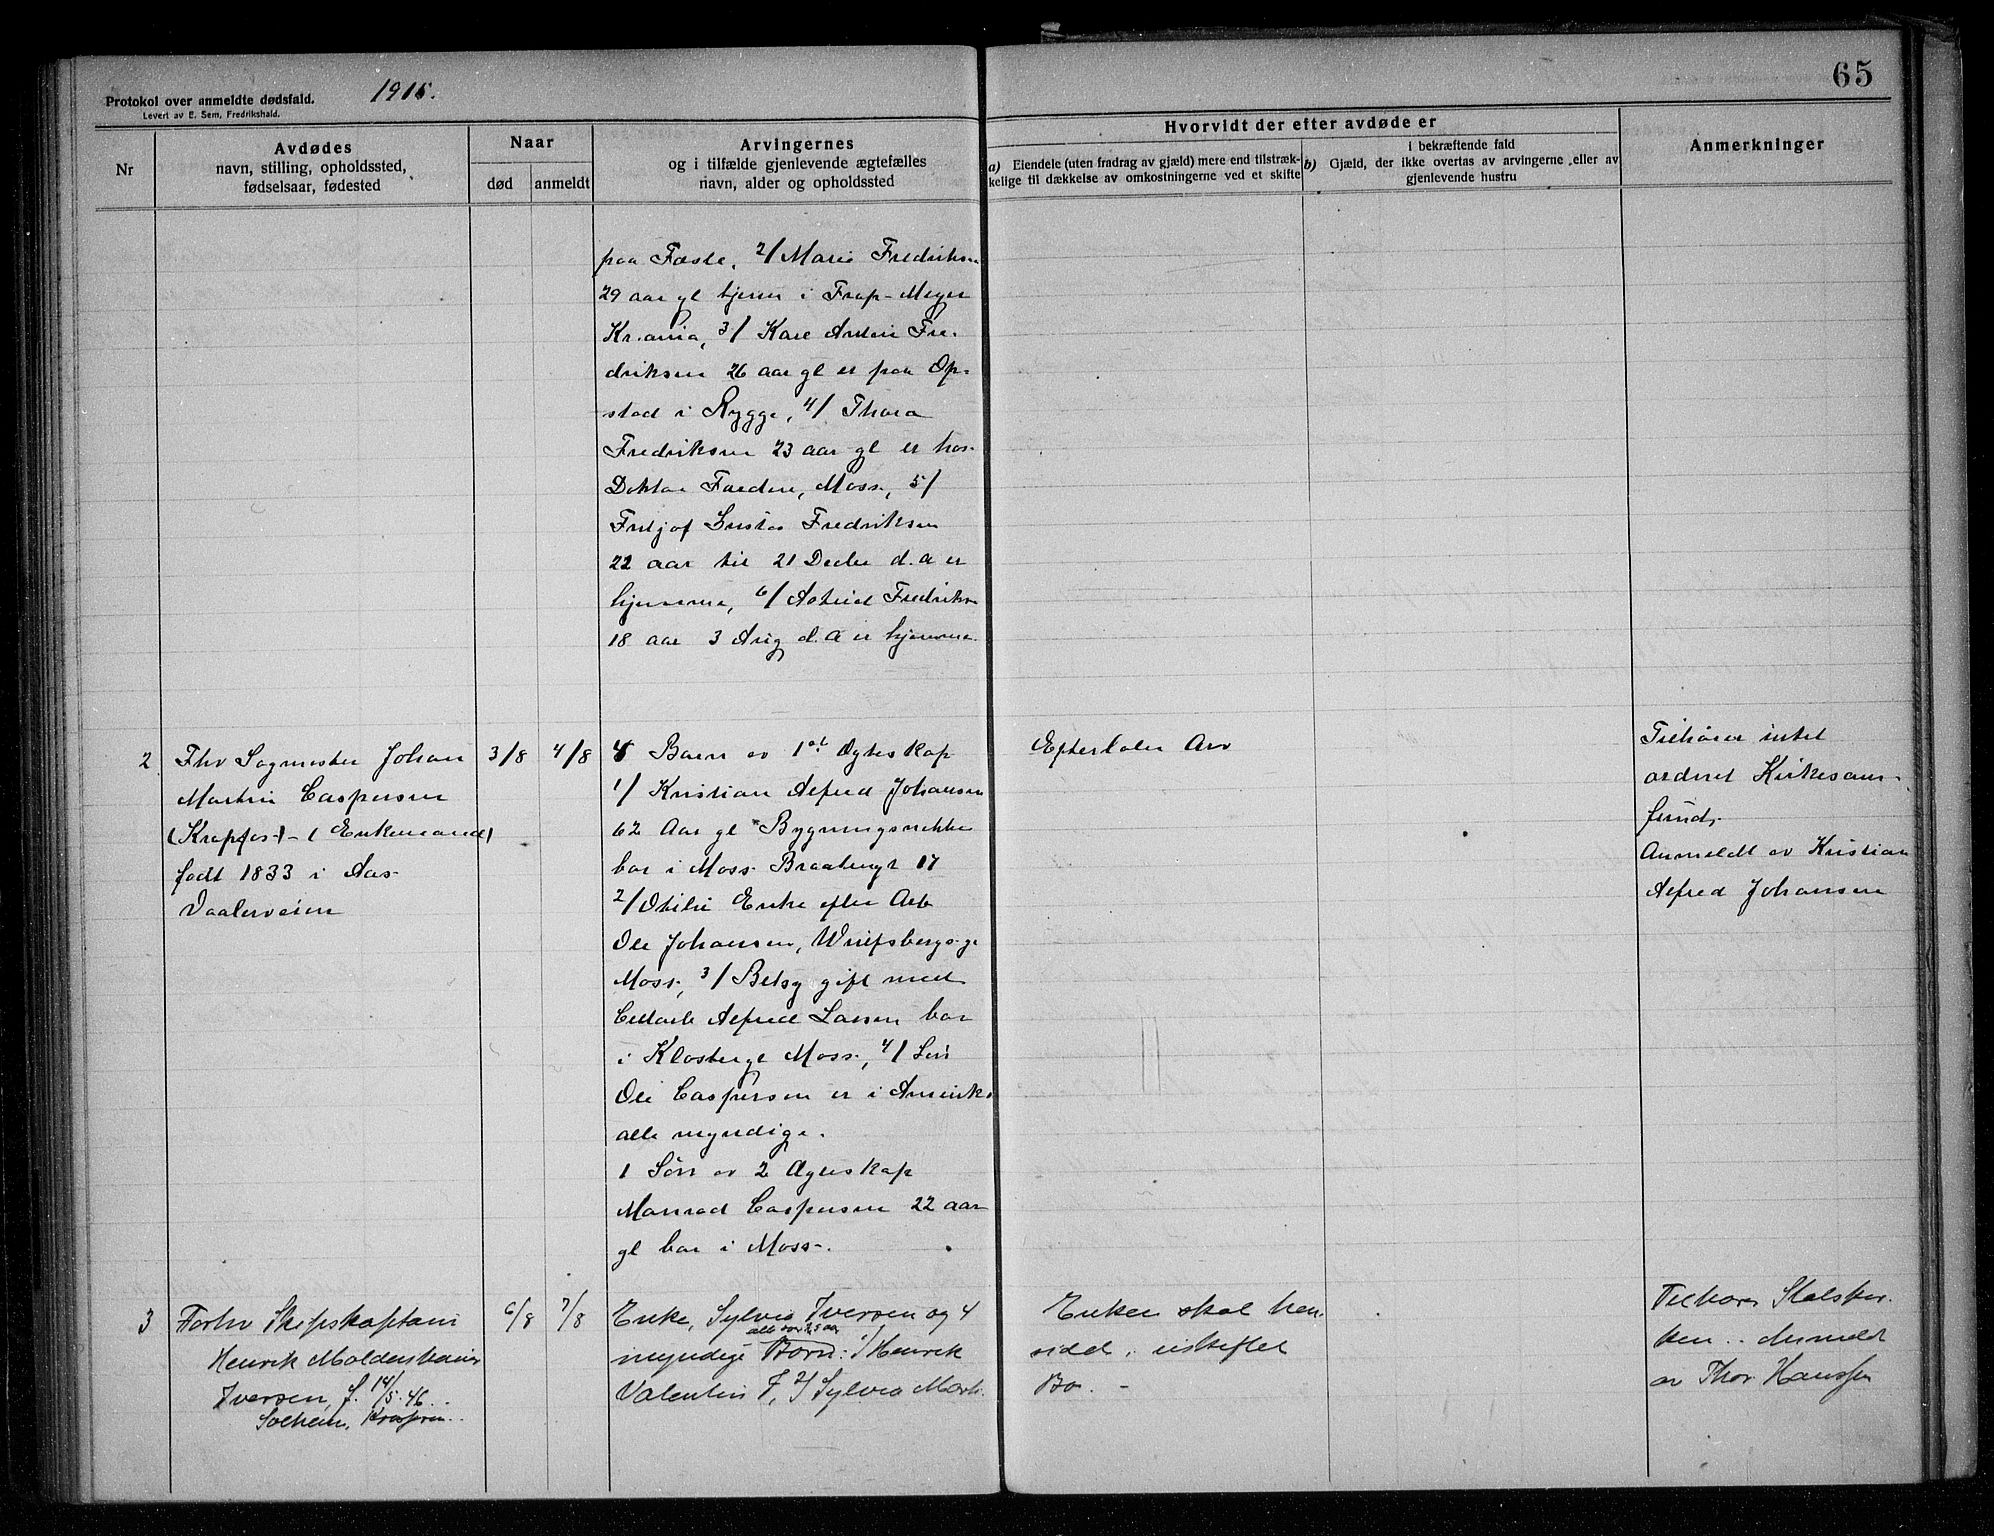 65
Protokol over anmeldte dødsfald.
Levert av E. Sem, Fredrikshald.
1915.
Nr
Avdødes
navn, stilling, opholdssted,
fødselsaar, fødested
Naar
død
anmeldt
Arvingernes
og i tilfælde gjenlevende ægtefælles
navn, alder og opholdssted
Hvorvidt der efter avdøde er
a) Eiendele (uten fradrag av gjæld) mere end tilstræk-
kelige til dækkelse av omkostningerne ved et skifte
i bekræftende fald
b) Gjæld, der ikke overtas av arvingerne eller av
gjenlevende hustru
Anmerkninger
paa Første, 2/ Marie Fredriksen
29 aar gl hjem i Meyer
Kr.ania, 3/ Karl Anton Fre-
driksen 26 aar gl er paa Op-
stad i Rygge, 4/ Thora
Fredriksen 23 aar gl er hos
Doktor Farden, Moss, 5/
Fritjof Gustav Fredriksen
22 aar til 21 Decbr d.a er
hjemme, 6/ Astrid Fredriksen
18 aar 3 Aug d.a er hjemme
2
Fhv Sagmester Johan
Martin Caspersen
(Krapfos) - (Enkemand)
født 1833 i Aas
Vaalerveien
3/8
4/8
4 Barn av 1ste Ægteskap
1/ Kristian Alfred Johansen
62 Aar gl Bygningssnekker
bor i Moss Braatengt 17
2/ Otilie Enke efter Arb
Ole Johansen, Wulfsbergs g.
Moss, 3/ Betsy gift med
Alfred Larsen bor
i Klostergt Moss, 4/ Søn
Ole Caspersen er i Amerika
alle myndige.
1 Søn av 2 Ægteskap
Monrad Caspersen 22 aar
gl bor i Moss.
Efterlater Arv
Tilhører intet
ordnet Kirkesam-
fund.
Anmeldt av Kristian
Alfred Johansen
3
Forhv Skipskaptain
Henrik
Iversen, f. 14/5.46..
Solheim, Krapfos..
6/8
7/8
Enke, Sylvia Iversen og 4
alle over 25 aar
myndige Børn: 1/ Henrik
Valentin I, 2/ Sylvia
Enken skal hen-
sidde i uskiftet
Bo. -
Tilhører Statskir-
ken.. Anmeldt
av Thor Hanssen